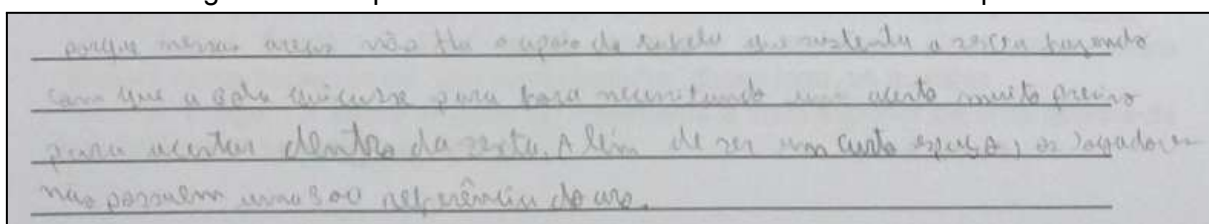 porque nessas áreas não há o apoio da tabela que sustenta a cesta fazendo
com que a bola quicasse para fora necessitando um acerto muito preciso
para acertar dentro da cesta. Além de ser um curto espaço, os jogadores
não possuem uma boa referência do aro.